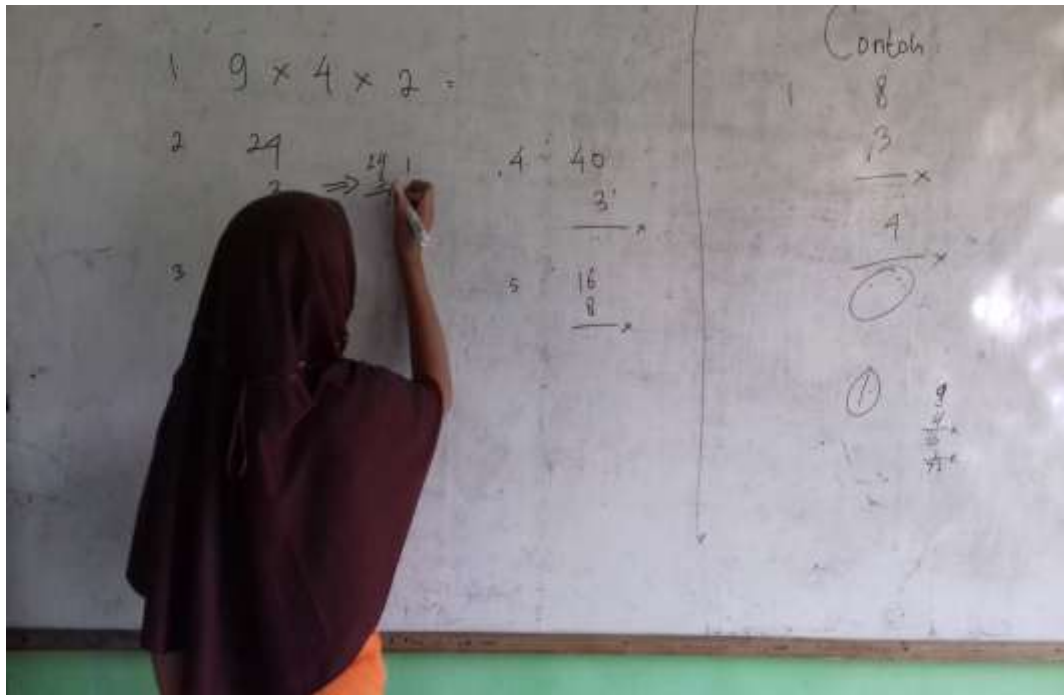 1 9 × 4 × 2 =
2 24
⇒ 24
3
4 40
3
×
5 16
8
×
Contoh
1 8
3
×
4
×
1.
9
4
×
×